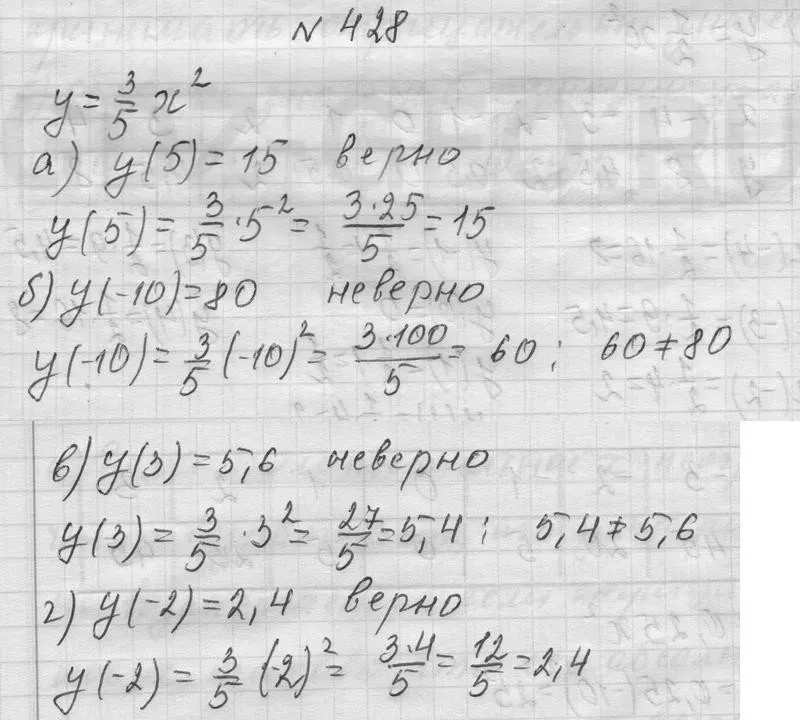 № 428
y = 3/5 x²
а) y(5) = 15 верно
y(5) = 3/5 · 5² = 3·25/5 = 15
б) y(-10) = 80 неверно
y(-10) = 3/5 (-10)² = 3·100/5 = 60 ; 60 ≠ 80
в) y(3) = 5,6 неверно
y(3) = 3/5 · 3² = 27/5 = 5,4 ; 5,4 ≠ 5,6
г) y(-2) = 2,4 верно
y(-2) = 3/5 (-2)² = 3·4/5 = 12/5 = 2,4